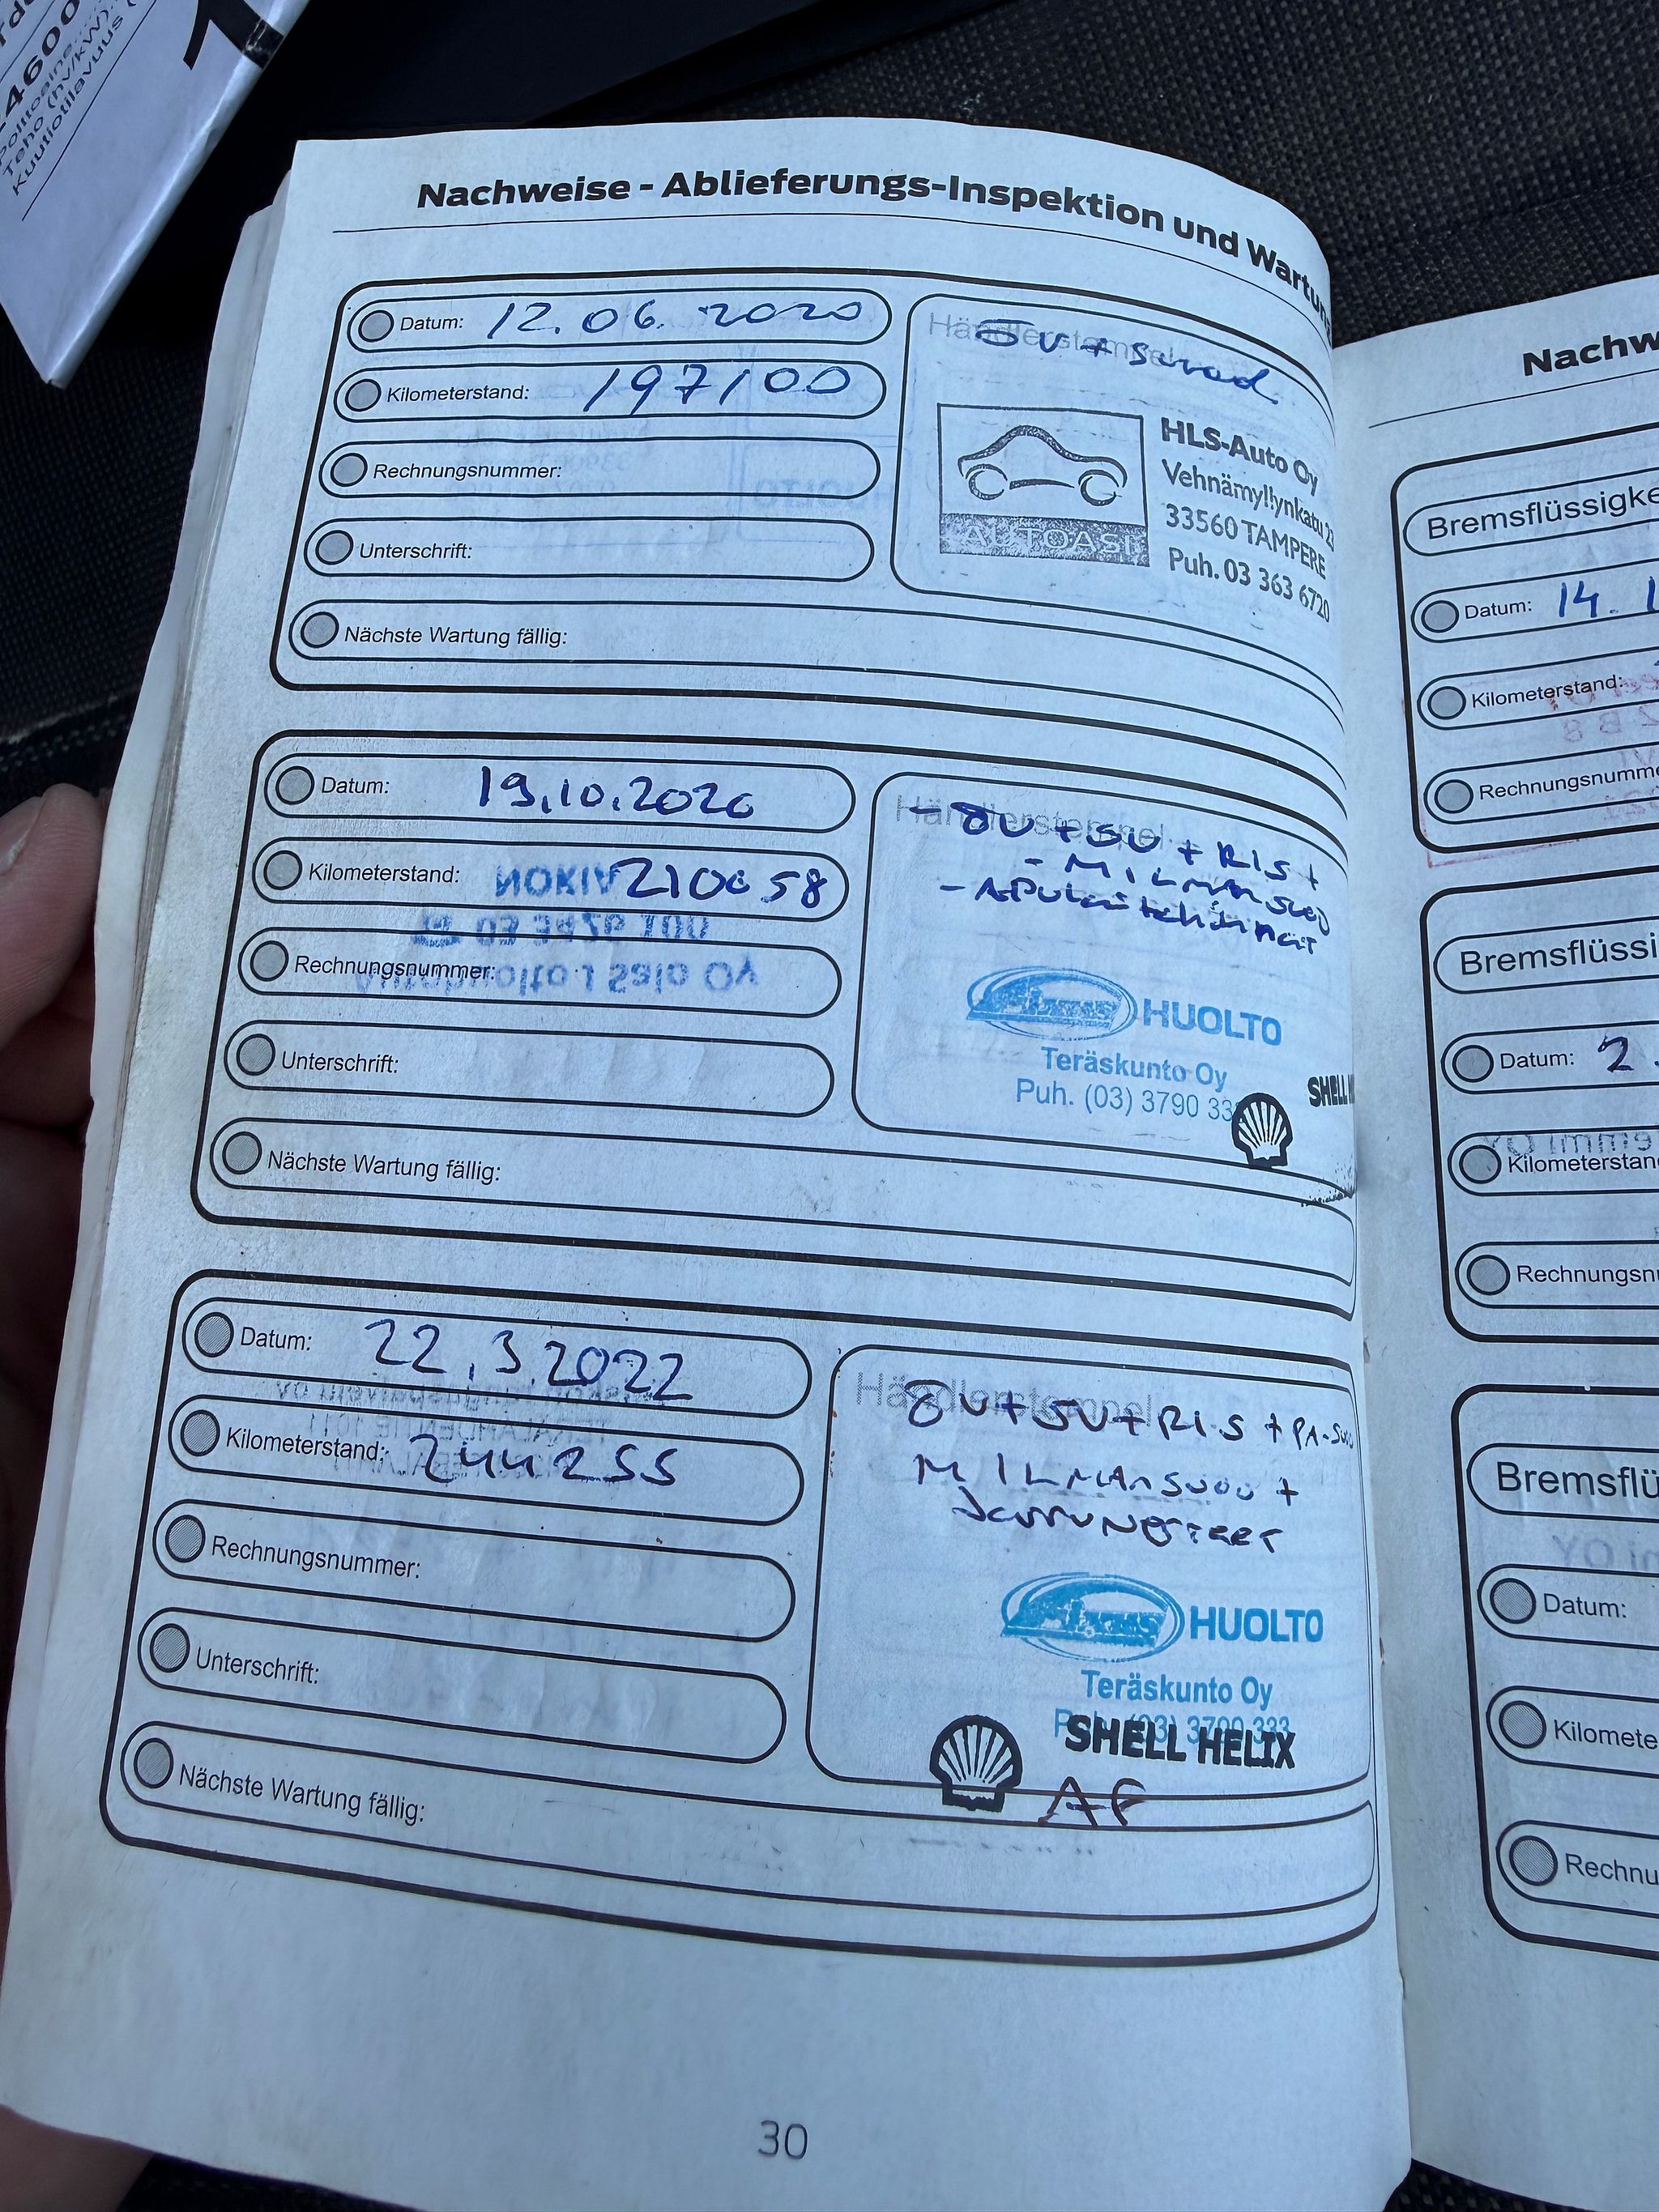 4600
Teho (hv/kW)
Kuutiotilavuus
1
Nachweise - Ablieferungs-Inspektion und Wartung
Datum: 12.06.2020
Kilometerstand: 197100
Rechnungsnummer:
Unterschrift:
Nächste Wartung fällig:
Händlerstempel
HLS-Auto Oy
Vehnämyllynkatu 23
33560 TAMPERE
Puh. 03 363 6720
AUTOASI
Datum: 19.10.2020
Kilometerstand: 210058
Rechnungsnummer:
Unterschrift:
Nächste Wartung fällig:
Händlerstempel
- ÖV + SV + RIS +
- MILMANSUOD
HUOLTO
Teräskunto Oy
Puh. (03) 3790 33
SHELL H
Datum: 22.3.2022
Kilometerstand: 244255
Rechnungsnummer:
Unterschrift:
Nächste Wartung fällig:
Händlerstempel
ÖV + SV + RIS + PA-Suo
MILMANSUOD +
HUOLTO
Teräskunto Oy
Puh. (03) 3790 333
SHELL HELIX
AF
30
Nachw
Bremsflüssigke
Datum: 14. 1
Kilometerstand:
Rechnungsnumme
Bremsflüssi
Datum: 2.
Kilometerstan
Rechnungsn
Bremsflü
Datum:
Kilomete
Rechnu